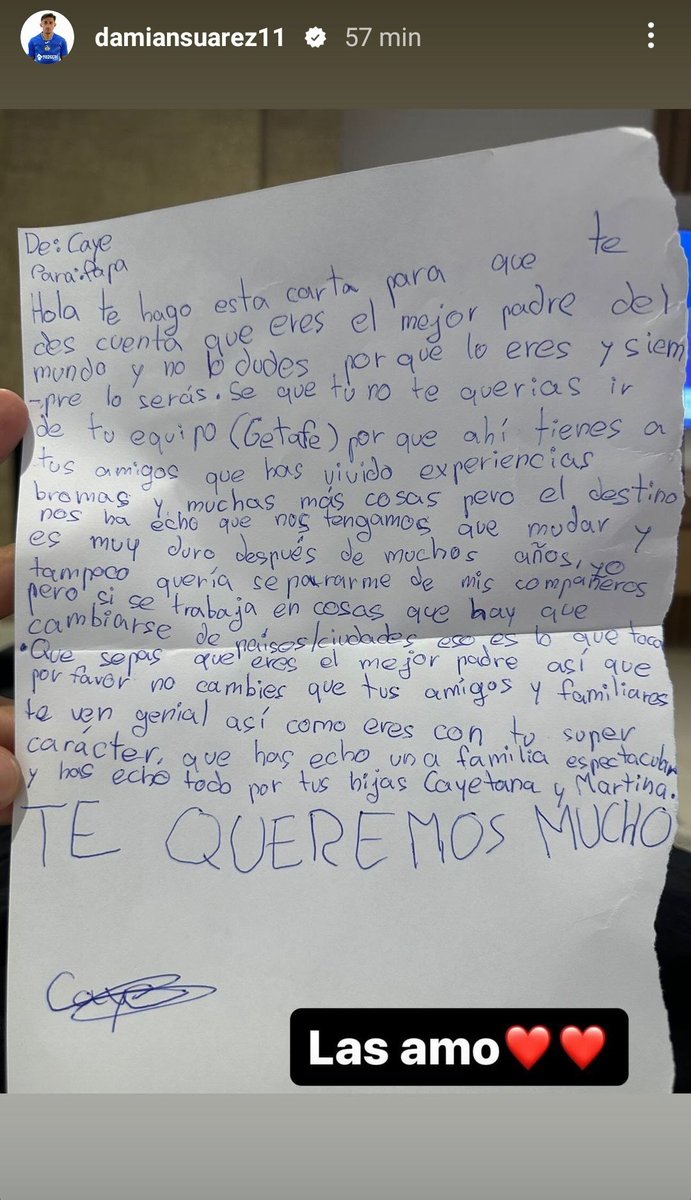 damiansuarez11 57 min
De: Caye
Para: Papa
Hola te hago esta carta para que te
des cuenta que eres el mejor padre del
mundo y no lo dudes, por que lo eres y siem
-pre lo serás. Se que tu no te querias ir
de tu equipo (Getafe) por que ahí tienes a
tus amigos que has vivido experiencias
bromas y muchas más cosas pero el destino
nos ha echo que nos tengamos que mudar y
es muy duro después de muchos años, yo
tampoco quería separarme de mis compañeros
pero si se trabaja en cosas que hay que
cambiarse de paises/ciudades eso es lo que toca
•Que sepas que eres el mejor padre así que
por favor no cambies que tus amigos y familiares
te ven genial así como eres con tu super
carácter, que has echo una familia espectacular
y has echo todo por tus hijas Cayetana y Martina.
TE QUEREMOS MUCHO
Caye
Las amo❤️❤️